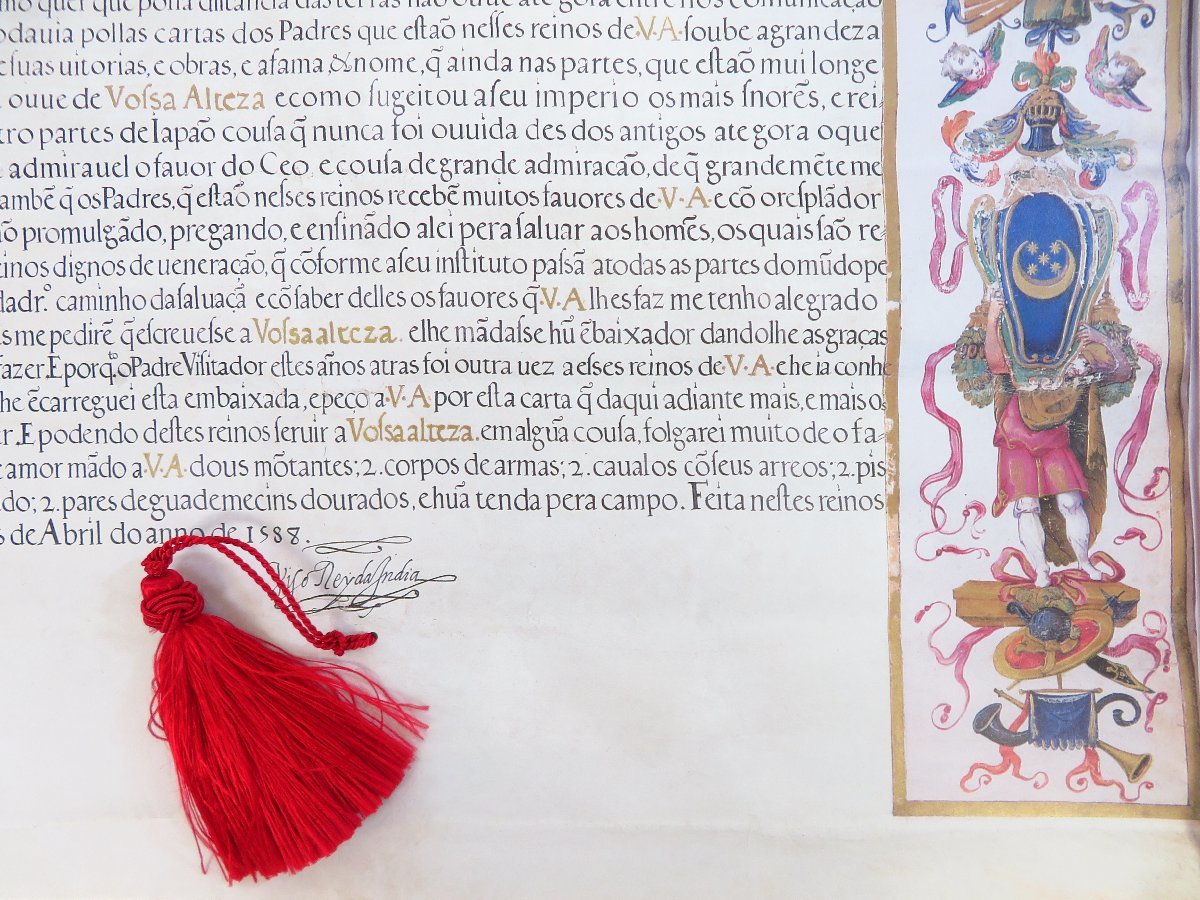 mo quer que polla distancia das terras não ouue ate gora entre nos comunicação
odauia pollas cartas dos Padres que eſtaõ neſſes reinos de·V·A·ſoube agrandeza
eſuas uitorias, e obras, e afama, & nome, q̃ ainda nas partes, que eſtaõ mui longe
ouue de Voſsa Alteza ecomo ſugeitou aſeu imperio os mais ſnorẽs, e rei
tro partes de Iapaõ couſa q̃ nunca foi ouuida des dos antigos ate gora o que
admirauel o fauor do Ceo, e couſa de grande admiracaõ, de q̃ grandemẽte me
ambẽ q̃ os Padres, q̃ eſtaõ neſses reinos recebẽ muitos fauores de·V·A·ecõ oreſplãdor
aõ promulgãdo, pregando, e enſinãdo alei pera ſaluar aos homẽs, os quais ſaõ re-
inos dignos de ueneraçaõ, q̃ cõforme aſeu inſtituto paſsã atodas as partes do mũdo pe
ladr.º caminho da ſaluaçã ecõ ſaber delles os fauores q̃·V·A lhes faz me tenho alegrado
s me pedirẽ q̃ eſcreueſse a Voſsa alteza. elhe mãdaſse hũ ẽbaixador dandolhe as graças
azer. E porq̃.to o Padre Viſitador eſtes años atras foi outra uez a eſses reinos de·V·A·eheia conhe
he ẽcarreguei eſta embaixada, e peço a·V·A por eſta carta q̃ daqui adiante mais, e mais o
r. E podendo deſtes reinos ſeruir a Voſsa alteza. em algũa couſa, folgarei muito de o fa-
amor mãdo a·V·A· dous mõtantes; 2. corpos de armas; 2. caualos cõ ſeus arreos; 2. pis
do; 2. pares de guademecins dourados, e huã tenda pera campo. Feita neſtes reinos
s de Abril do anno de 1588.
Viſo Rey da India